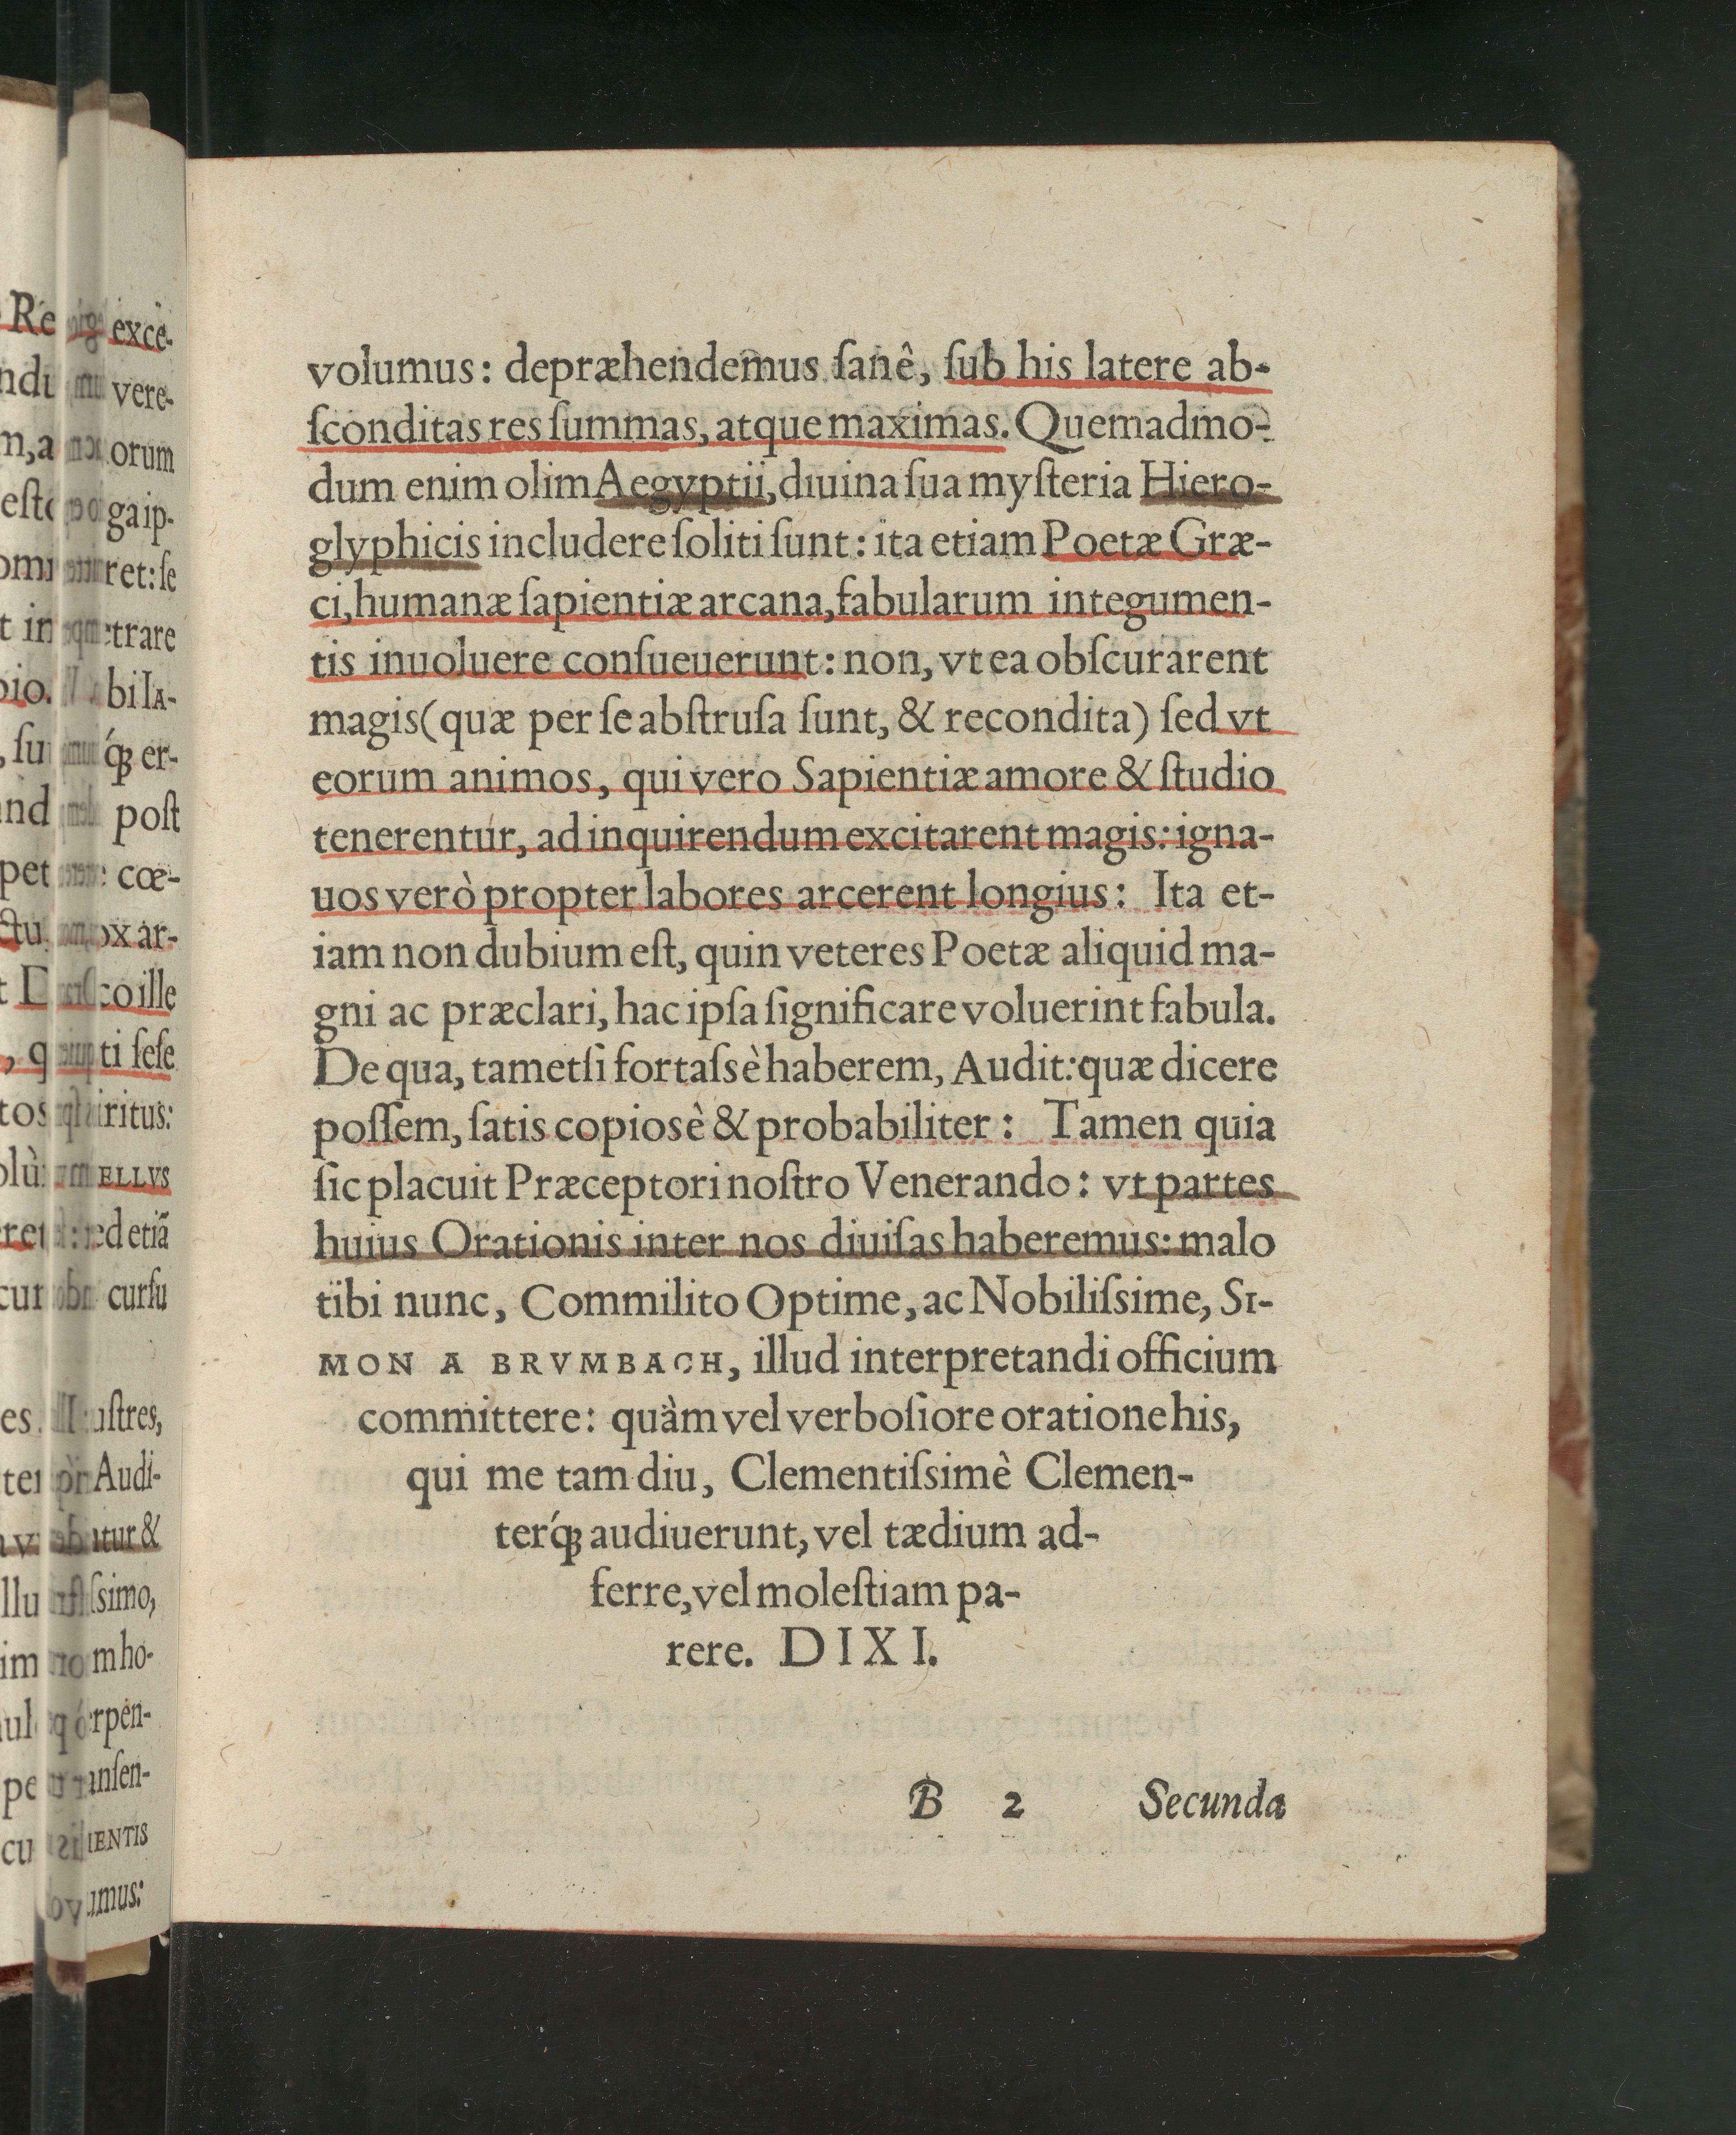 volumus: depræhendemus ſanê, ſub his latere ab-
ſconditas res ſummas, atque maximas. Quemadmo-
dum enim olim Aegyptii, diuina ſua myſteria Hiero-
glyphicis includere ſoliti ſunt: ita etiam Poetæ Græ-
ci, humanæ ſapientiæ arcana, fabularum integumen-
tis inuoluere conſueuerunt: non, vt ea obſcurarent
magis (quæ per ſe abſtruſa ſunt, & recondita) ſed vt
eorum animos, qui vero Sapientiæ amore & ſtudio
tenerentur, ad inquirendum excitarent magis: igna-
uos verò propter labores arcerent longius: Ita et-
iam non dubium eſt, quin veteres Poetæ aliquid ma-
gni ac præclari, hac ipſa ſignificare voluerint fabula.
De qua, tametſi fortaſsè haberem, Audit: quæ dicere
poſſem, ſatis copiosè & probabiliter: Tamen quia
ſic placuit Præceptori noſtro Venerando: vt partes
huius Orationis inter nos diuiſas haberemus: malo
tibi nunc, Commilito Optime, ac Nobiliſsime, SI-
MON A BRVMBACH, illud interpretandi officium
committere: quàm vel verboſiore oratione his,
qui me tam diu, Clementiſsimè Clemen-
terq́ꝫ audiuerunt, vel tædium ad-
ferre, vel moleſtiam pa-
rere. DIXI.
B 2 Secunda